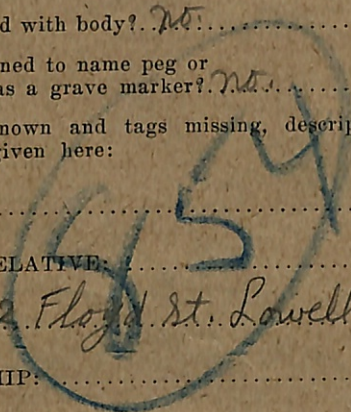 d with body? No.
ned to name peg or
as a grave marker? No.
nown and tags missing, descrip
given here:
ELATIVE:
2 Floyd St. Lowell
HIP: